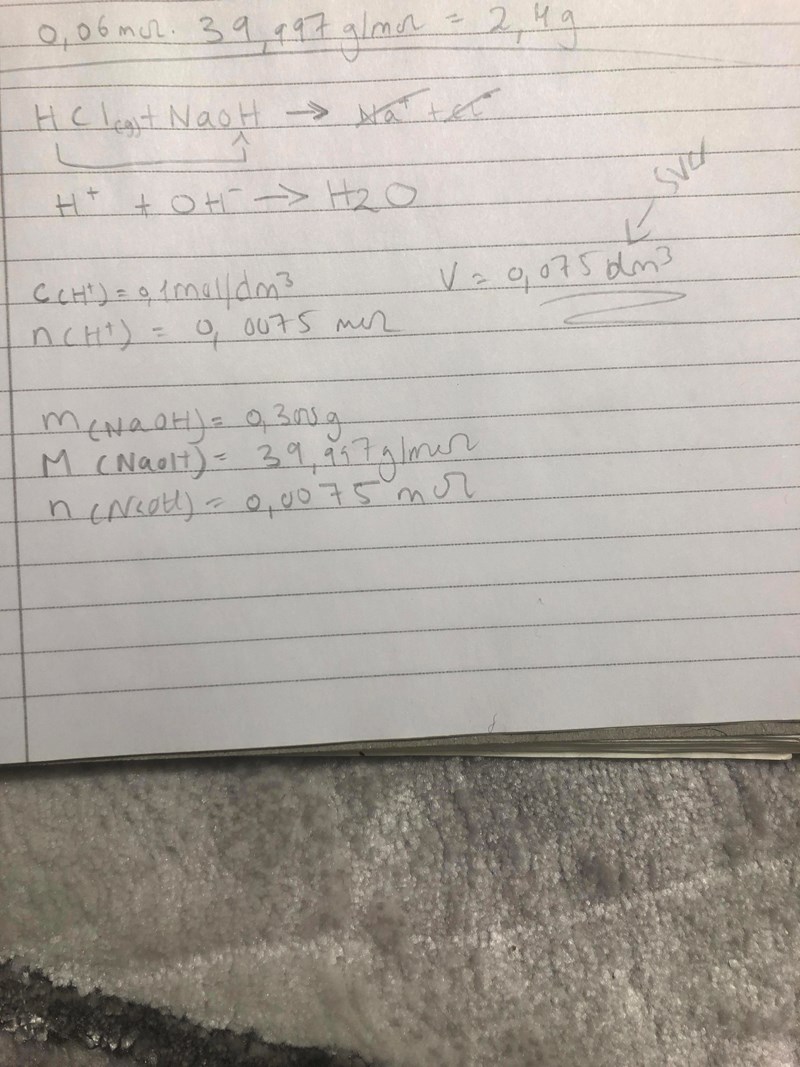 0,06 mol · 39,997 g/mol = 2,4g
HCl(g) + NaOH → Na⁺ + Cl⁻
H⁺ + OH⁻ → H2O
svar
c(H⁺) = 0,1 mol/dm³ V = 0,075 dm³
n(H⁺) = 0,0075 mol
m(NaOH) = 0,300g
M (NaOH) = 39,997 g/mol
n (NaOH) = 0,0075 mol